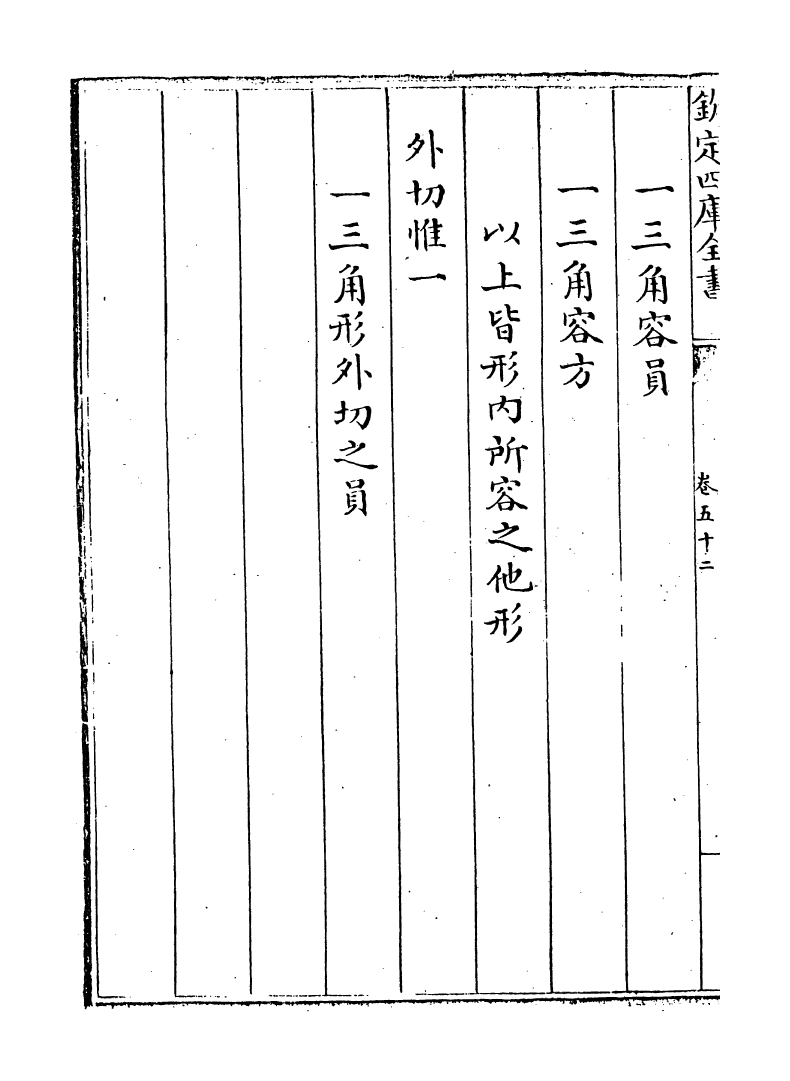 欽定四庫全書
卷五十二
一三角容員
一三角容方
以上皆形内所容之他形
外切惟一
一三角形外切之員